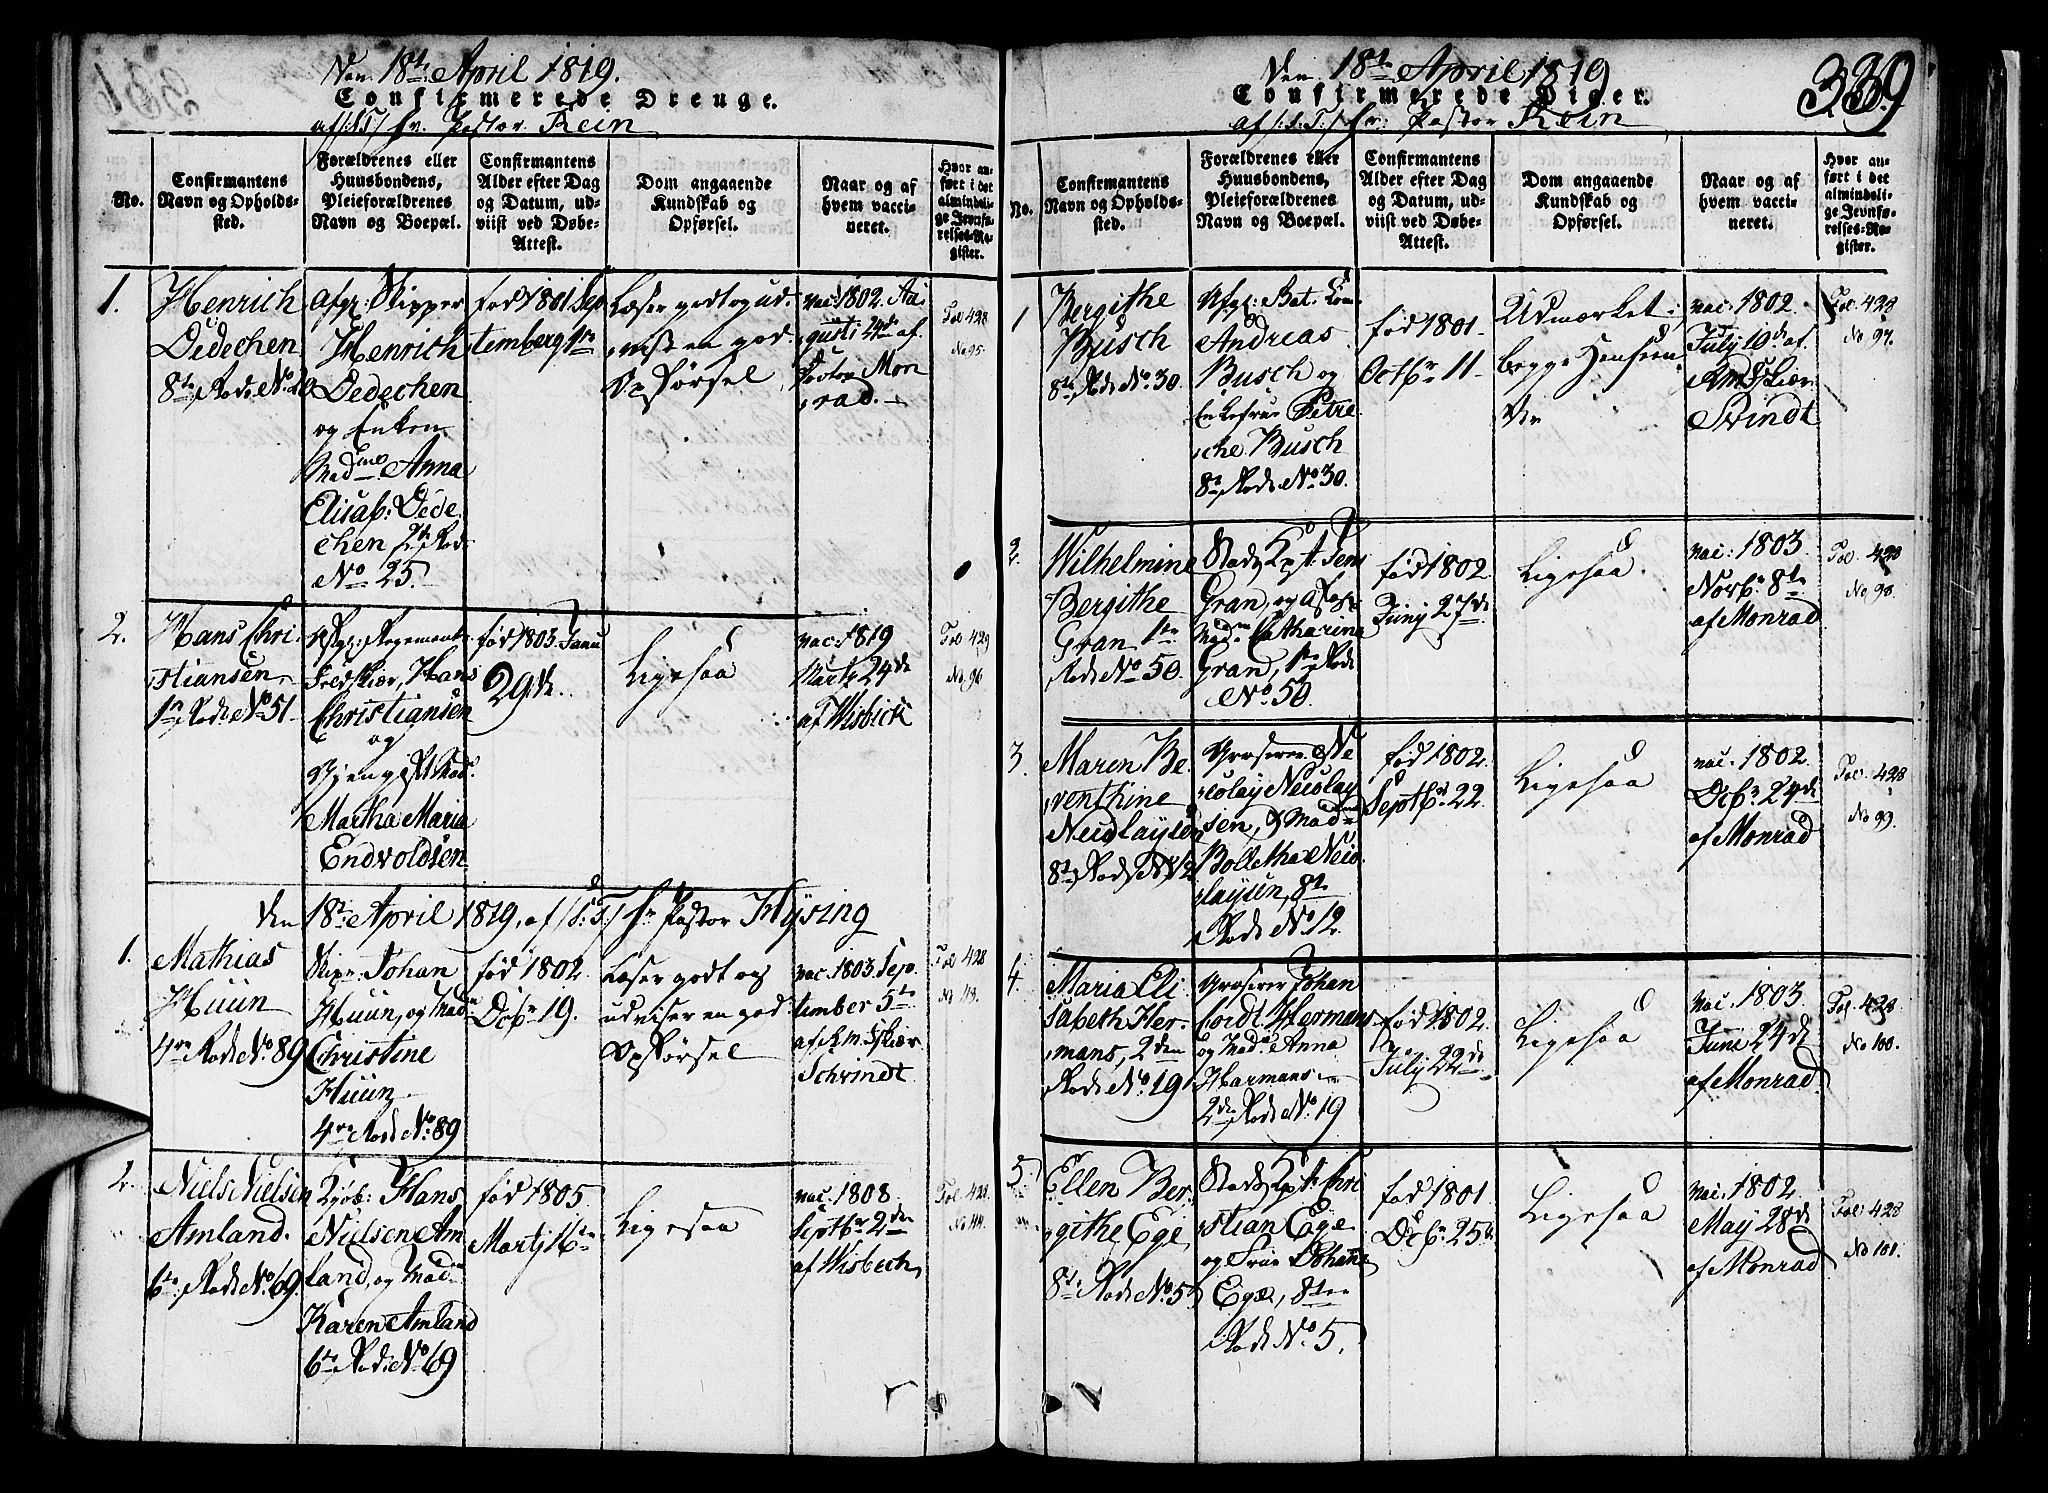 Den 18de April 1819.
Confirmerede Drenge.
af /:S:T:/ Hr. Pastor Rein
No.
Confirmantens
Navn og Opholds-
sted.
Forældrenes eller
Huusbondens,
Pleieforældrenes
Navn og Boepæl.
Confirmantens
Alder efter Dag
og Datum, ud-
viist ved Døbe-
Attest.
Dom angaaende
Kundskab og
Opførsel.
Naar og af
hvem vacci-
neret.
Hvor an-
ført i det
almindeli-
ge Jevnfø-
relses-Re-
gister.
1.
Henrich
Dedechen
8de Rode No
Afgl: Skipper
Henrich
Dedechen
og Enken
Madme Anna
Elisab: Dede
chen 2den Rode
No 25.
fød 1801 Sep
tember
Læser godt og ud-
en god
Opførsel
vac: 1802. Au
gusti 24de af
Pastor Mon
rad.
Fol 428
No 95.
2.
Hans Chri
stiansen
1te Rode No 51
Hans
Christiansen
og
Martha Maria
Endvoldsen
fød 1803 Janu
29de.
Ligesaa
vac: 1819
Marts 24de
af Wisbech
Fol 429
No 96
Den 18de April 1819, af /:S:T:/ Hr Pastor Hysing
1.
Mathias
Huun
4de Rode No 89
Skipr Johan
Huun, og Mad
Christine
Huun
4de Rode No 89
fød 1802
Dcbr 19.
Læser godt og
udviser en god
Opførsel
vac: 1803 Sep
tember 5te
af Amtskiær
Schvindt
Fol 428
No 43.
2.
Niels Nielsen
Amland.
6te Rode No 69.
Kjøb: Hans
Nielsen Am
land, og Mad
Karen Amland
6te Rode No 69
fød 1805
Martj 16de
Ligesaa
vac: 1808
Septbr 2den
af Wisbech
Fol 428
No 44.
339
Den 18de April 1819
Confirmerede Piger.
af /:S:T:/ Hr: Pastor Rein
No.
Confirmantens
Navn og Opholds-
sted.
Forældrenes eller
Huusbondens,
Pleieforældrenes
Navn og Boepæl.
Confirmantens
Alder efter Dag
og Datum, ud-
viist ved Døbe-
Attest.
Dom angaaende
Kundskab og
Opførsel.
Naar og af
hvem vacci-
neret.
Hvor an-
ført i det
almindeli-
ge Jevnfø-
relses-Re-
gister.
1
Bergithe
Busch
8de Rode No 30.
Afgl: Bat. Kom
Andreas
Busch og
Enkefrue Petre
che Busch
8de Rode No 30.
fød 1801
Octbr 11
Udmærket i
begge Henseen
der
vac: 1802
July 10de af
Amtskiær
Svindt
Fol. 428
No 97.
2.
Wilhelmine
Bergithe
Gran 1te
Rode No 50.
Stads Kpt: Jens
Gran, og
Madm Catharina
Gran, 1te Rode
No 50
fød 1802
Junj 27de
Ligesaa
vac: 1803
Novbr 8de
af Monrad
Fol. 428
No 98.
3.
Maren Be
renthine
Nicolaysen
8de Rode No 12
Groserer Ni
colay Nicolay
sen, & Madm
Bolletha Nico
laysen, 8de
Rode No 12.
fød 1802
Septbr 22.
Ligesaa
vac: 1802
Dcbr 24de
af Monrad
Fol. 428
No 99.
4.
Maria Eli
sabeth Her-
mans, 2den
Rode No 19
Groserer Johan
Cordt Hermans
og Mad: Anna
Harmans
2den Rode No 19
fød 1802
July 22de
Ligesaa
Vac. 1803
Juni 24de
af Monrad
Fol. 428
No 100.
5.
Ellen Ber
githe Ege
8de Rode No 5
Stads Kpt: Chri
stian Ege
og Frue Johanne
Ege, 8de
Rode No 5.
fød 1801
Dcbr 25de
Ligesaa
vac. 1802
May 28de
af Monrad
Fol 428
No 101.